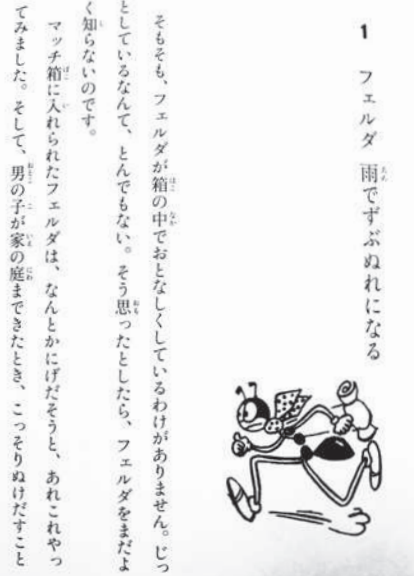 1 フェルダ 雨でずぶぬれになる
そもそも、フェルダが箱の中でおとなしくしているわけがありません。じっ
としているなんて、とんでもない。そう思ったとしたら、フェルダをまだよ
く知らないのです。
マッチ箱に入れられたフェルダは、なんとかにげだそうと、あれこれやっ
てみました。そして、男の子が家の庭まできたとき、こっそりぬけだすこと